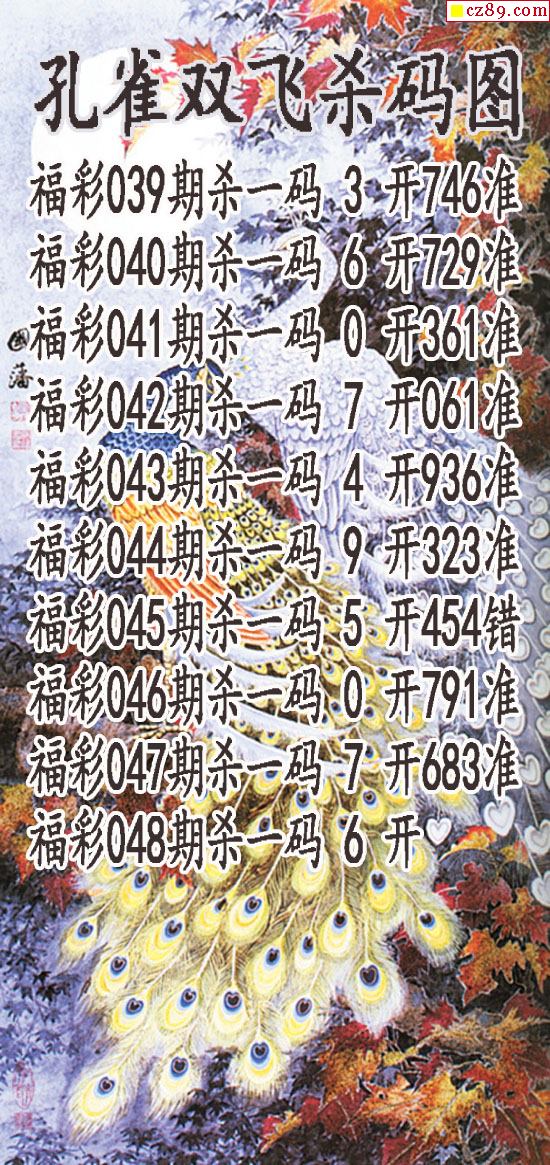 cz89.com
孔雀双飞杀码图
福彩039期杀一码 3 开746准
福彩040期杀一码 6 开729准
福彩041期杀一码 0 开361准
福彩042期杀一码 7 开061准
福彩043期杀一码 4 开936准
福彩044期杀一码 9 开323准
福彩045期杀一码 5 开454错
福彩046期杀一码 0 开791准
福彩047期杀一码 7 开683准
福彩048期杀一码 6 开
國藩